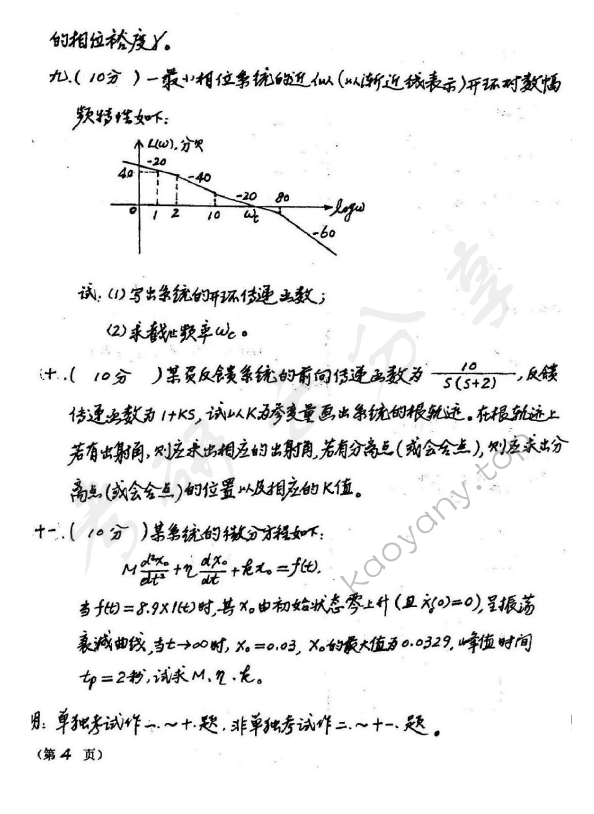 的相位裕度γ。
九.(10分)一最小相位系统的近似(以渐近线表示)开环对数幅
频特性如下:
L(ω),分贝
-20
40
-40
-20
80
0
1
2
10
ωc
logω
-60
试:(1)写出系统的开环传递函数;
(2)求截止频率ωc。
十.(10分)某负反馈系统的前向传递函数为 10/S(S+2),反馈
传递函数为1+KS,试以K为参变量画出系统的根轨迹。在根轨迹上
若有出射角,则应求出相应的出射角,若有分离点(或会合点),则应求出分
离点(或会合点)的位置以及相应的K值。
十一.(10分)某系统的微分方程如下:
M d²x₀/dt² + η dx₀/dt + kx₀ = f(t).
当f(t)=8.9×1(t)时,其x₀由初始状态零上升(且ẋ₀(0)=0),呈振荡
衰减曲线,当t→∞时,x₀=0.03,x₀的最大值为0.0329,峰值时间
tp=2秒,试求M、η、k。
明:单独考试作一.~十.题,非单独考试作二.~十一.题。
(第4页)
考研分享
kaoyany.top